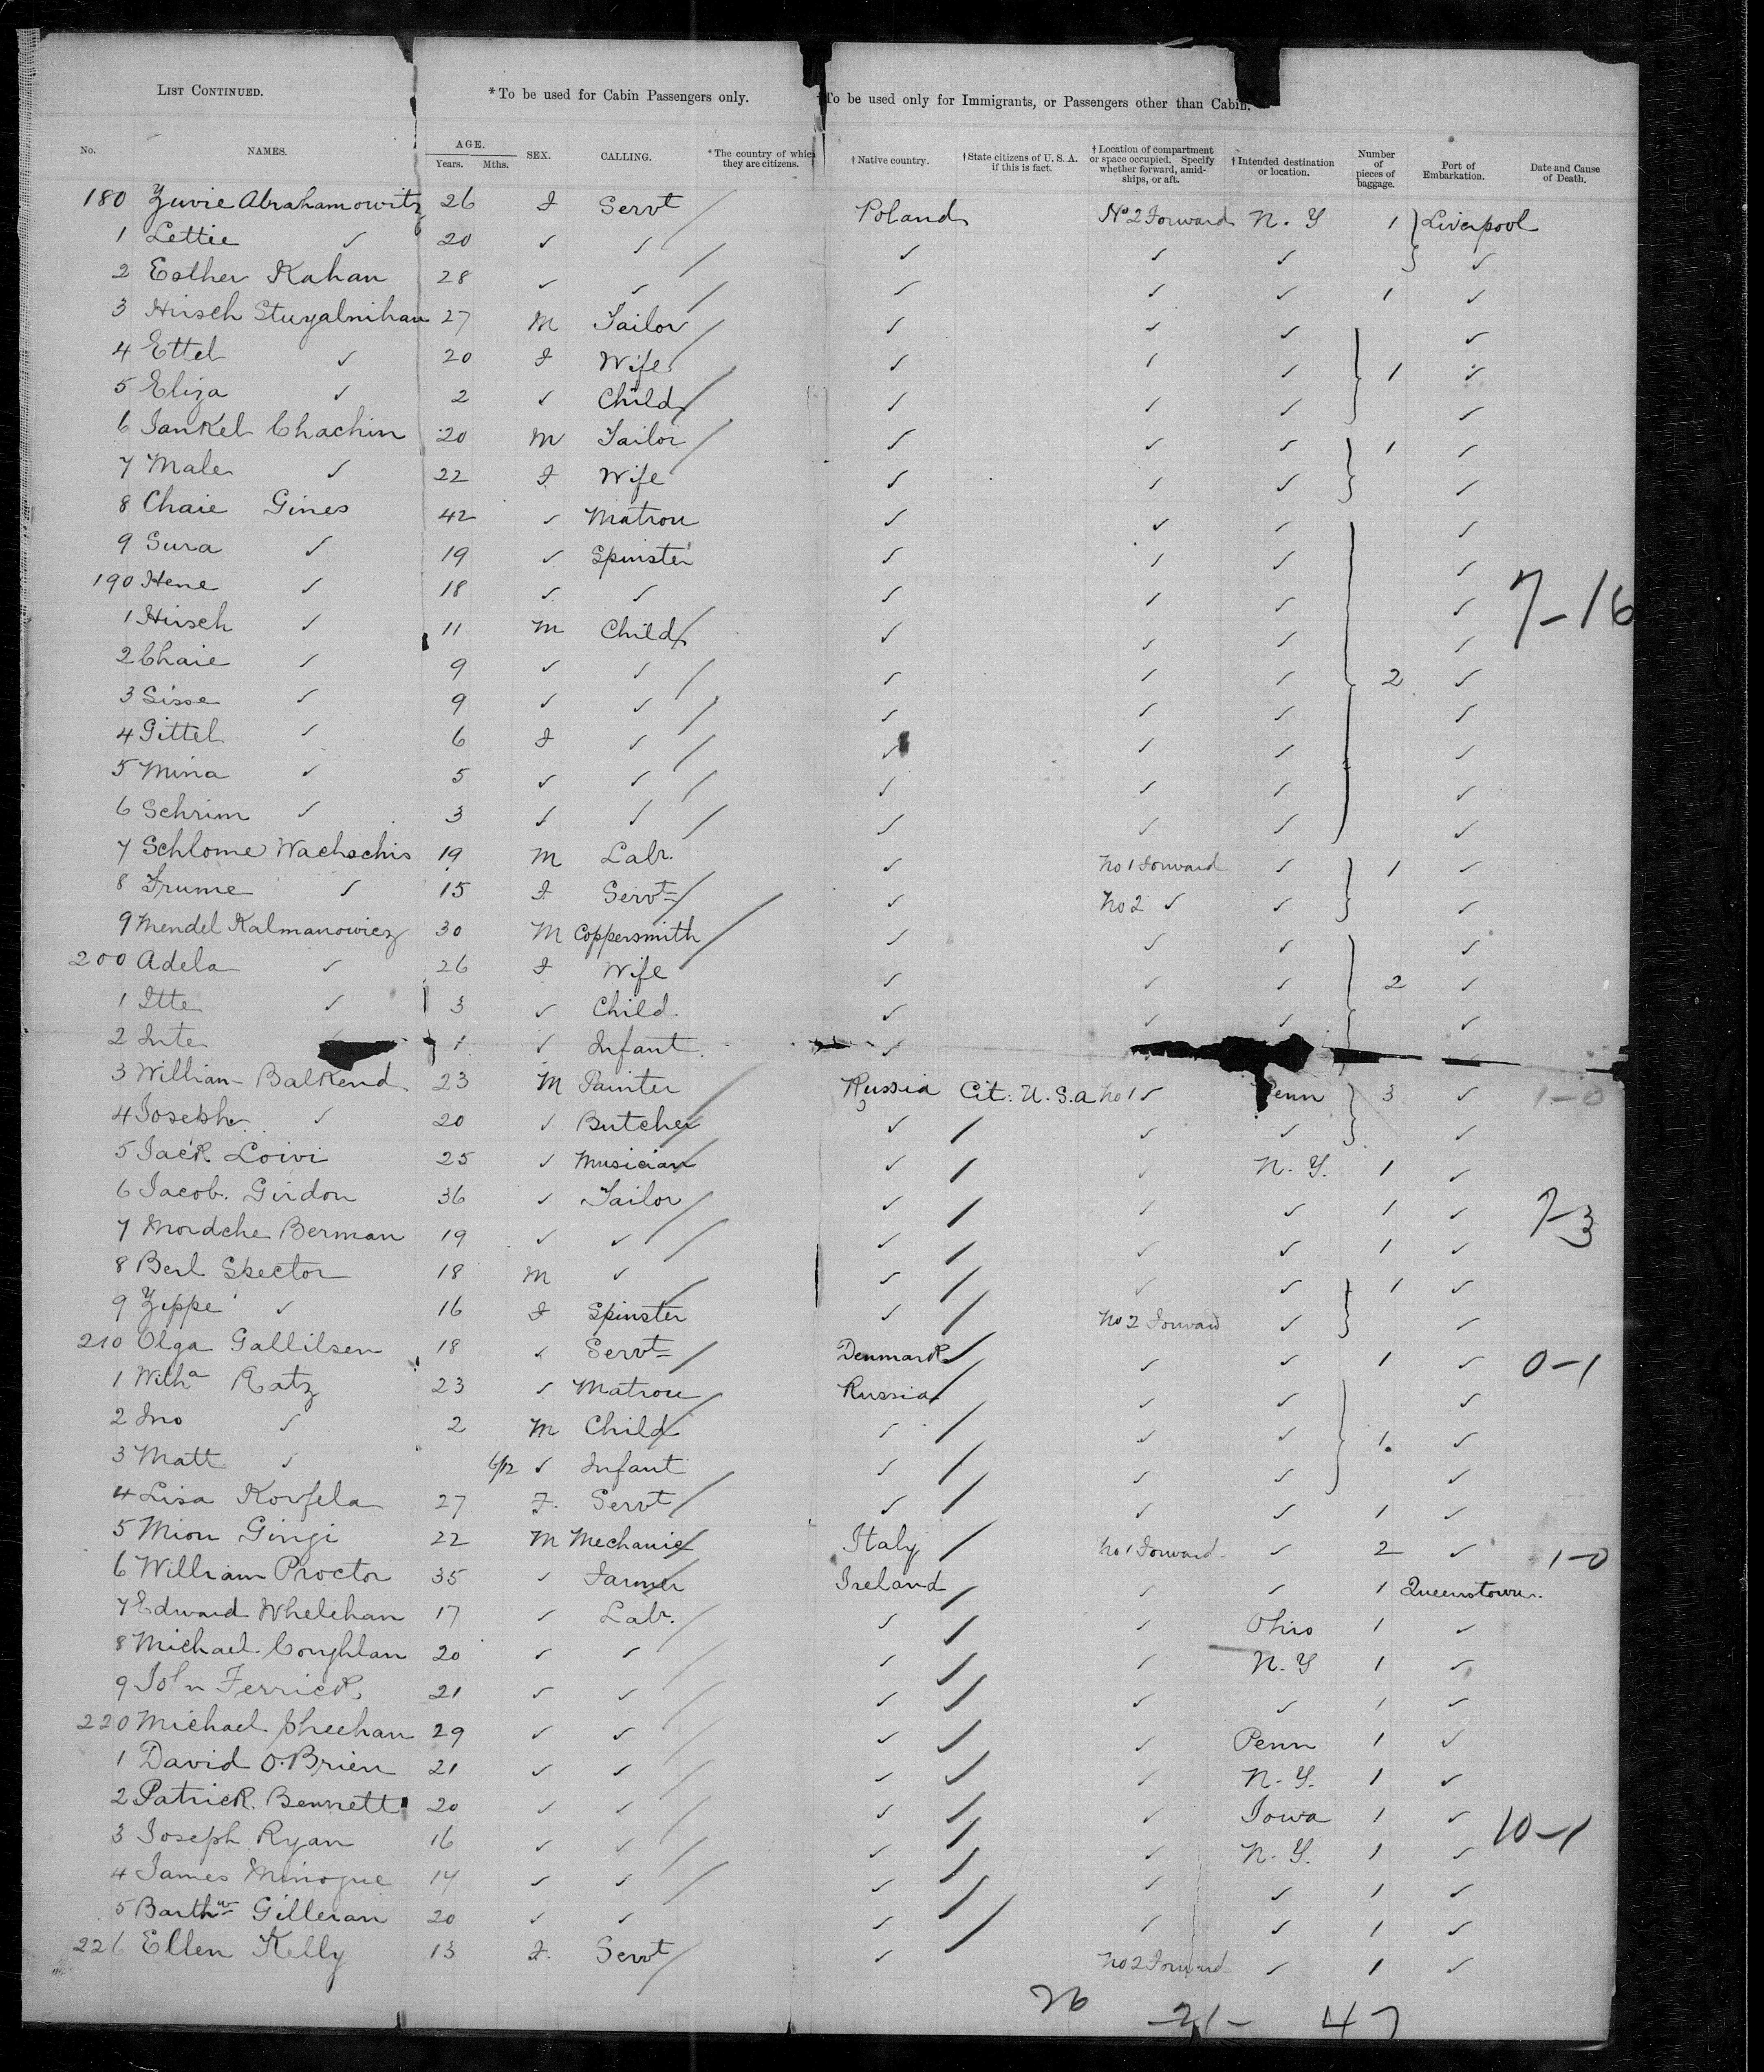 LIST CONTINUED. *To be used for Cabin Passengers only. †To be used only for Immigrants, or Passengers other than Cabin.
No. NAMES. AGE. Years. Mths. SEX. CALLING. *The country of which they are citizens. †Native country. †State citizens of U. S. A. if this is fact. †Location of compartment or space occupied. Specify whether forward, amidships, or aft. †Intended destination or location. Number of pieces of baggage. Port of Embarkation. Date and Cause of Death.
180 Zuvie Abrahamowitz 26 F Servt Poland No 2 Forward N. Y 1 Liverpool
1 Lettie ✓ 20 ✓ ✓ ✓ ✓ ✓ ✓
2 Esther Kahan 28 ✓ ✓ ✓ ✓ ✓ 1 ✓
3 Hirsch 27 M Tailor ✓ ✓ ✓ ✓
4 Ettel ✓ 20 F Wife ✓ ✓ ✓ 1 ✓
5 Eliza ✓ 2 ✓ Child ✓ ✓ ✓ ✓
6 Jankel Chachin 20 M Tailor ✓ ✓ ✓ 1 ✓
7 Male ✓ 22 F Wife ✓ ✓ ✓ ✓
8 Chaie Gines 42 ✓ Matron ✓ ✓ ✓ ✓
9 Sura ✓ 19 ✓ Spinster ✓ ✓ ✓ ✓
190 Hene ✓ 18 ✓ ✓ ✓ ✓ ✓ ✓ 7-16
1 Hirsch ✓ 11 M Child ✓ ✓ ✓ ✓
2 Chaie ✓ 9 ✓ ✓ ✓ ✓ ✓ 2 ✓
3 Sisse ✓ 9 ✓ ✓ ✓ ✓ ✓ ✓
4 Gittel ✓ 6 F ✓ ✓ ✓ ✓ ✓
5 Mina ✓ 5 ✓ ✓ ✓ ✓ ✓ ✓
6 Schrim ✓ 3 ✓ ✓ ✓ ✓ ✓ ✓
7 Schlome Wachschis 19 M Labr. ✓ No 1 Forward ✓ 1 ✓
8 Frume ✓ 15 F Servt ✓ No 2 ✓ ✓ ✓
9 Mendel Kalmanowicz 30 M Coppersmith ✓ ✓ ✓ ✓
200 Adela ✓ 26 F Wife ✓ ✓ ✓ 2 ✓
1 Itte ✓ 3 ✓ Child ✓ ✓ ✓ ✓
2 Inte 1 ✓ Infant ✓
3 William Balkend 23 M Painter Russia Cit: U. S. a No 1 ✓ Penn 3 ✓ 1-0
4 Joseph ✓ 20 ✓ Butcher ✓ ✓ ✓ ✓
5 Jack Loivi 25 ✓ Musician ✓ ✓ N. Y. 1 ✓
6 Jacob. Girdon 36 ✓ Tailor ✓ ✓ ✓ 1 ✓ 7-3
7 Mordche Berman 19 ✓ ✓ ✓ ✓ ✓ 1 ✓
8 Berl Spector 18 M ✓ ✓ ✓ ✓ 1 ✓
9 Zippe ✓ 16 F Spinster ✓ No 2 Forward ✓ ✓
210 Olga Gallilsen 18 ✓ Servt Denmark ✓ ✓ 1 ✓ 0-1
1 Wilha Ratz 23 ✓ Matron Russia ✓ ✓ ✓
2 Jno ✓ 2 M Child ✓ ✓ ✓ 1 ✓
3 Matt ✓ 6/12 ✓ Infant ✓ ✓ ✓ ✓
4 Lisa Kovfela 27 F. Servt ✓ ✓ ✓ 1 ✓
5 Mion Gingi 22 M Mechanic Italy No 1 Forward ✓ 2 ✓ 1-0
6 William Proctor 35 ✓ Farmer Ireland ✓ ✓ 1 Queenstown.
7 Edward Whelehan 17 ✓ Labr. ✓ ✓ Ohio 1 ✓
8 Michael Coughlan 20 ✓ ✓ ✓ ✓ N. Y 1 ✓
9 John Ferrick 21 ✓ ✓ ✓ ✓ ✓ 1 ✓
220 Michael Sheehan 29 ✓ ✓ ✓ ✓ Penn 1 ✓
1 David O'Brien 21 ✓ ✓ ✓ ✓ N. Y. 1 ✓
2 Patrick Bennett 20 ✓ ✓ ✓ ✓ Iowa 1 ✓ 10-1
3 Joseph Ryan 16 ✓ ✓ ✓ ✓ N. Y. 1 ✓
4 James Minogue 14 ✓ ✓ ✓ ✓ ✓ 1 ✓
5 Barthw Gilleran 20 ✓ ✓ ✓ ✓ ✓ 1 ✓
226 Ellen Kelly 13 F. Servt ✓ No 2 Forward ✓ 1 ✓
26 -21- 47